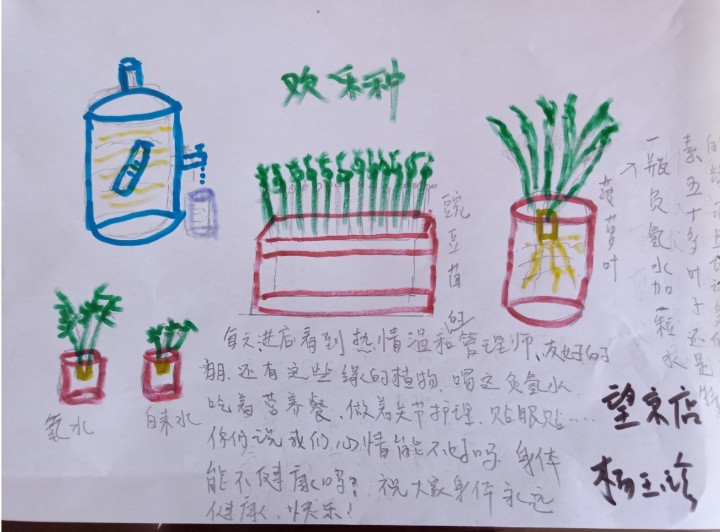 欢乐种
豌豆苗
菠萝叶
一瓶负氢水加一粒
素五十多叶子还是
氢水
自来水
每天进店看到热情温和管理师、友好的
朋、还有这些绿的植物、喝这负氢水
吃着营养餐、做着关节护理、贴眼贴……
你们说我们心情能不好吗、身体
能不健康吗？祝大家身体永远
健康、快乐！
望京店
杨玉珍